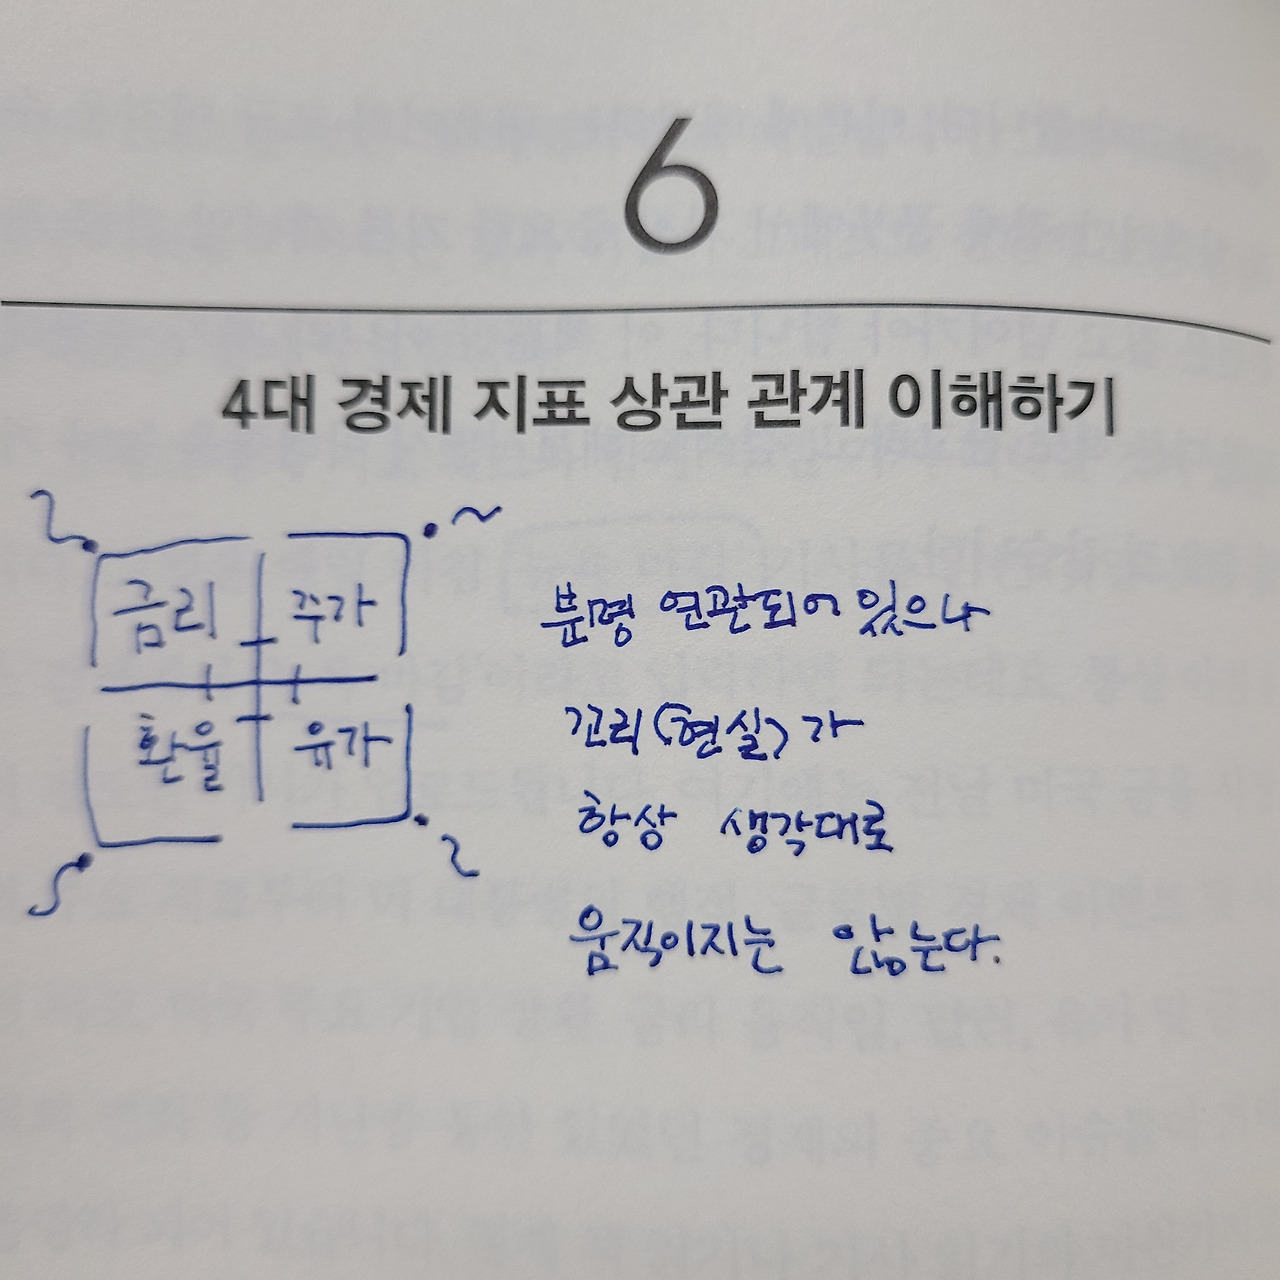 6
4대 경제 지표 상관 관계 이해하기
금리 주가
환율 유가
분명 연관되어 있으나
꼬리(현실)가
항상 생각대로
움직이지는 않는다.